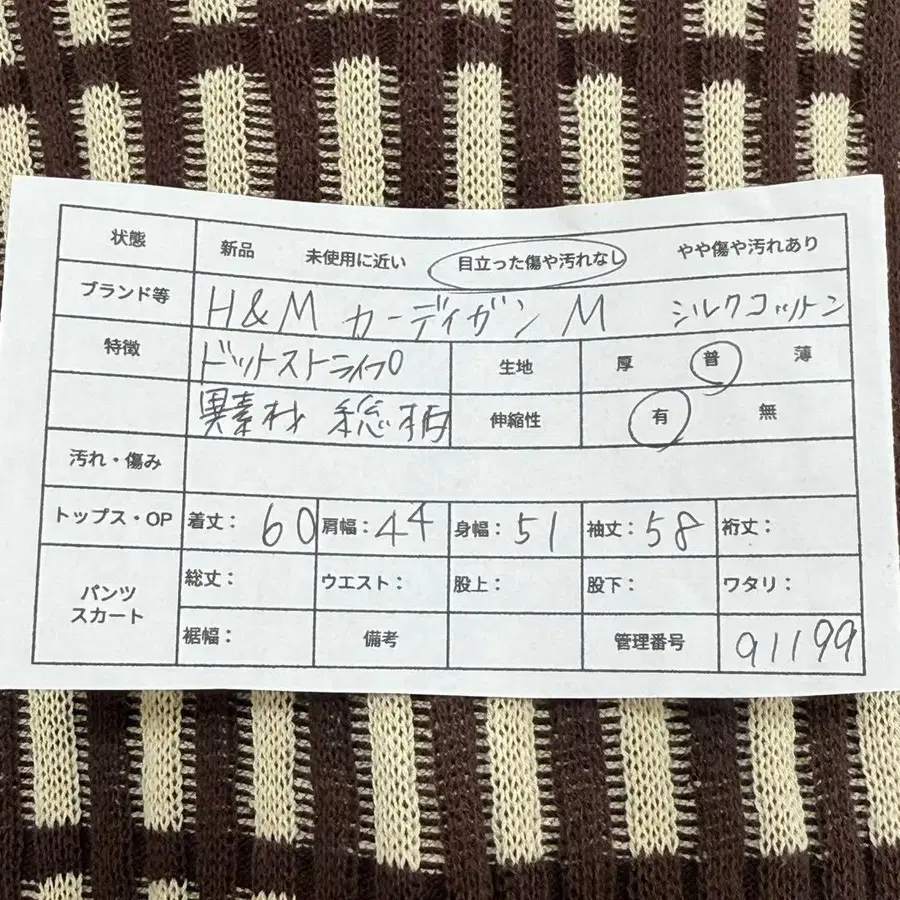 状態 新品 未使用に近い 目立った傷や汚れなし やや傷や汚れあり
ブランド等 H&M カーディガン M シルクコットン
特徴 ドットストライプ 生地 厚 普 薄
異素材 総柄 伸縮性 有 無
汚れ・傷み
トップス・OP 着丈: 60 肩幅: 44 身幅: 51 袖丈: 58 裄丈:
パンツ スカート 総丈: ウエスト: 股上: 股下: ワタリ:
裾幅: 備考 管理番号 91199